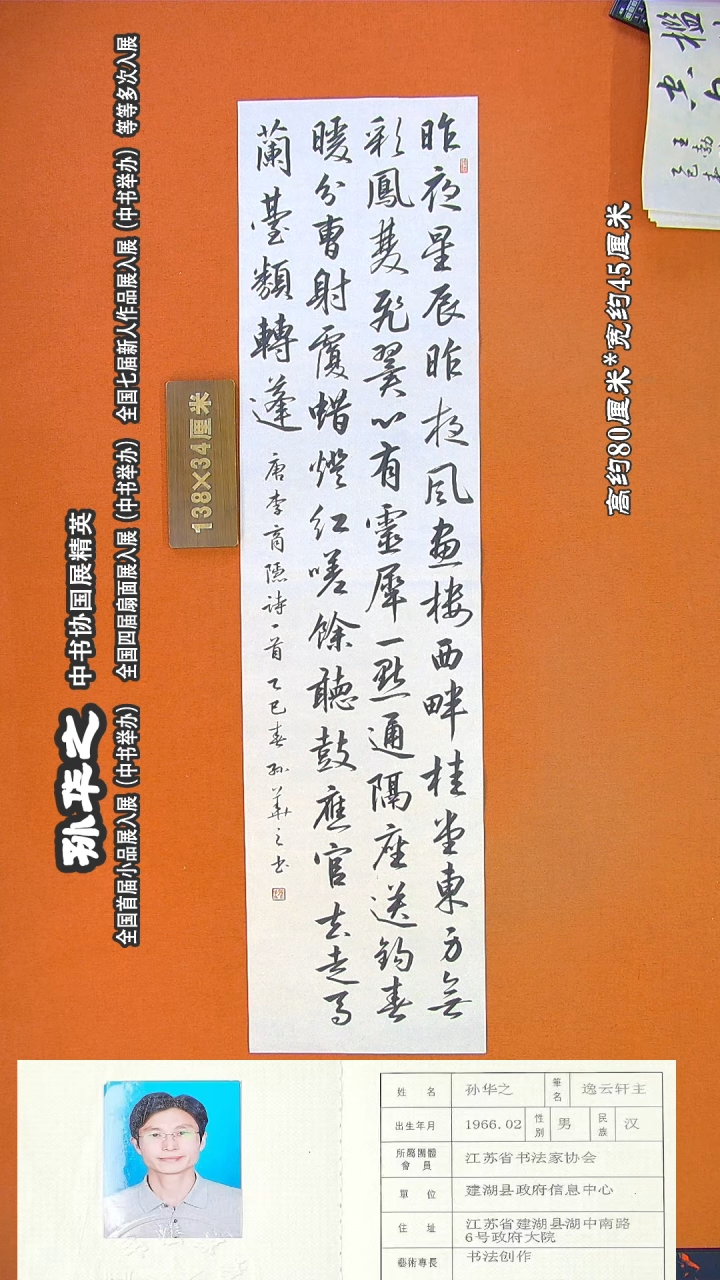 昨夜星辰昨夜風畫樓西畔桂堂東身無
彩鳳雙飛翼心有靈犀一點通隔座送鈎春
暖分曹射覆蜡燈紅嗟餘聽鼓應官去走馬
蘭臺類轉蓬 唐李商隱詩一首 乙巳春孫華之书
王勃
乙巳春
高约80厘米*宽约45厘米
138×34厘米
孙华之 中书协国展精英
全国首届小品展入展（中书举办） 全国四届扇面展入展（中书举办） 全国七届新人作品展入展（中书举办） 等等多次入展
姓名 孙华之 筆名 逸云轩主
出生年月 1966.02 性別 男 民族 汉
所屬團體會員 江苏省书法家协会
單位 建湖县政府信息中心
住址 江苏省建湖县湖中南路
6号政府大院
藝術專長 书法创作